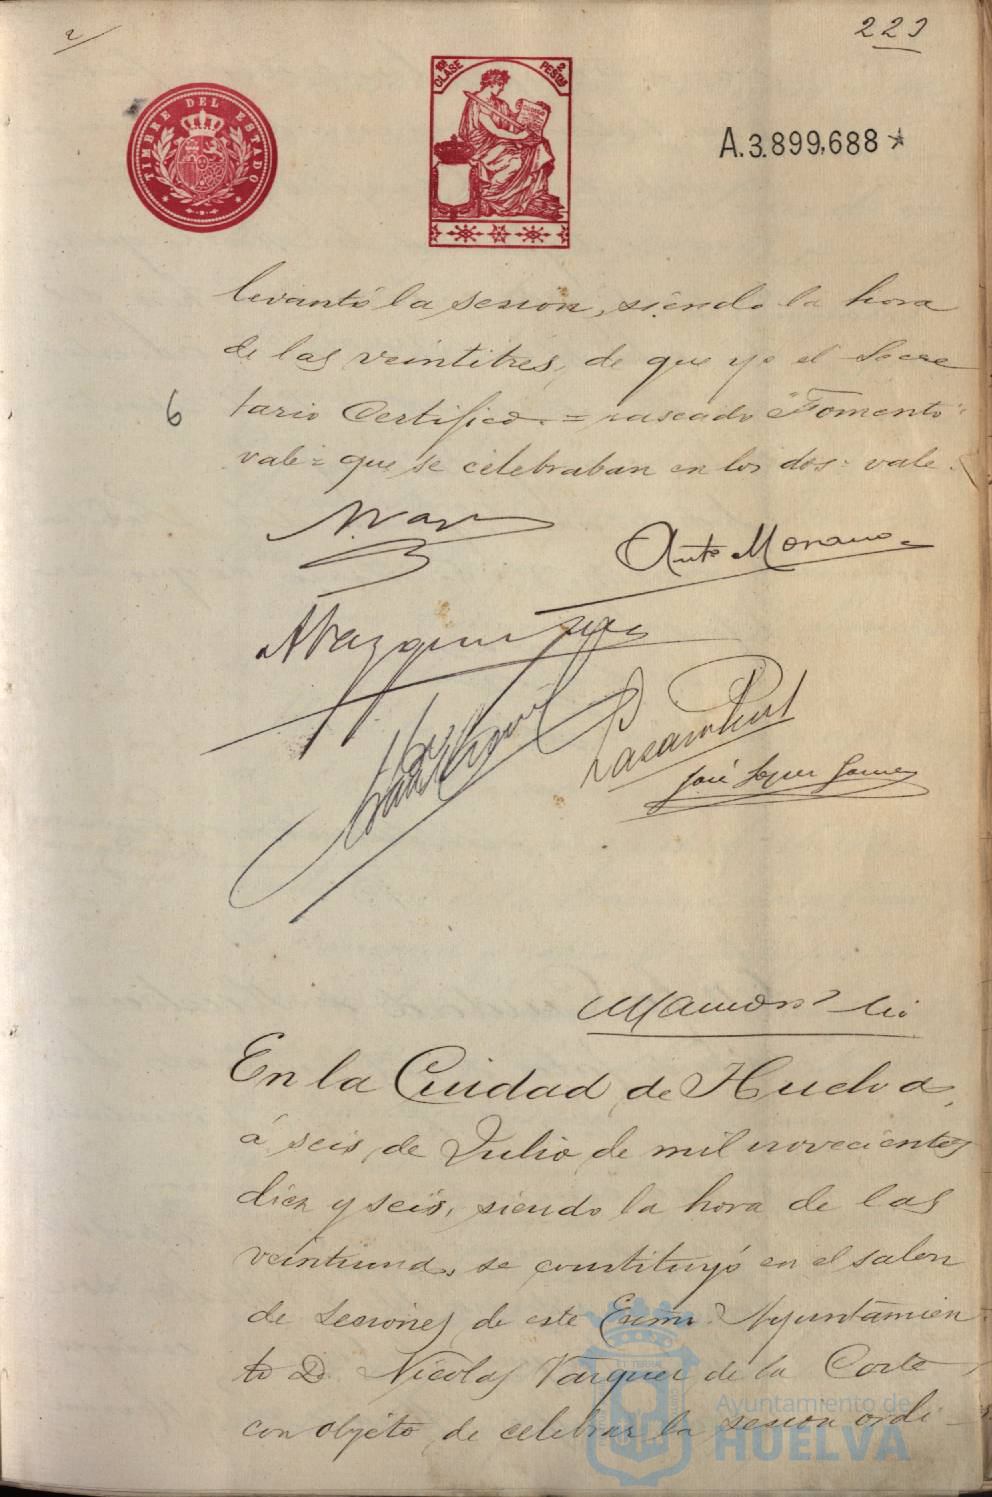 223
TIMBRE DEL ESTADO
10ª CLASE 2 PESETAS
A.3.899,688
levantó la sesion, siendo la hora
de las veintitres, de que yo el Secre
6
tario Certifico. = raseado "Fomento"
vale = que se celebraban en los dos = vale.
Anto Moreno
José López Gomez
En la Cuidad de Huelva,
á seis de Julio de mil novecientos
diez y seis, siendo la hora de las
veintiuna, se constituyó en el salon
de sesiones de este Excmo. Ayuntamien
to D. Nicolas Vazquez de la Corte,
con objeto de celebrar la sesion ordi-
Ayuntamiento de
HUELVA